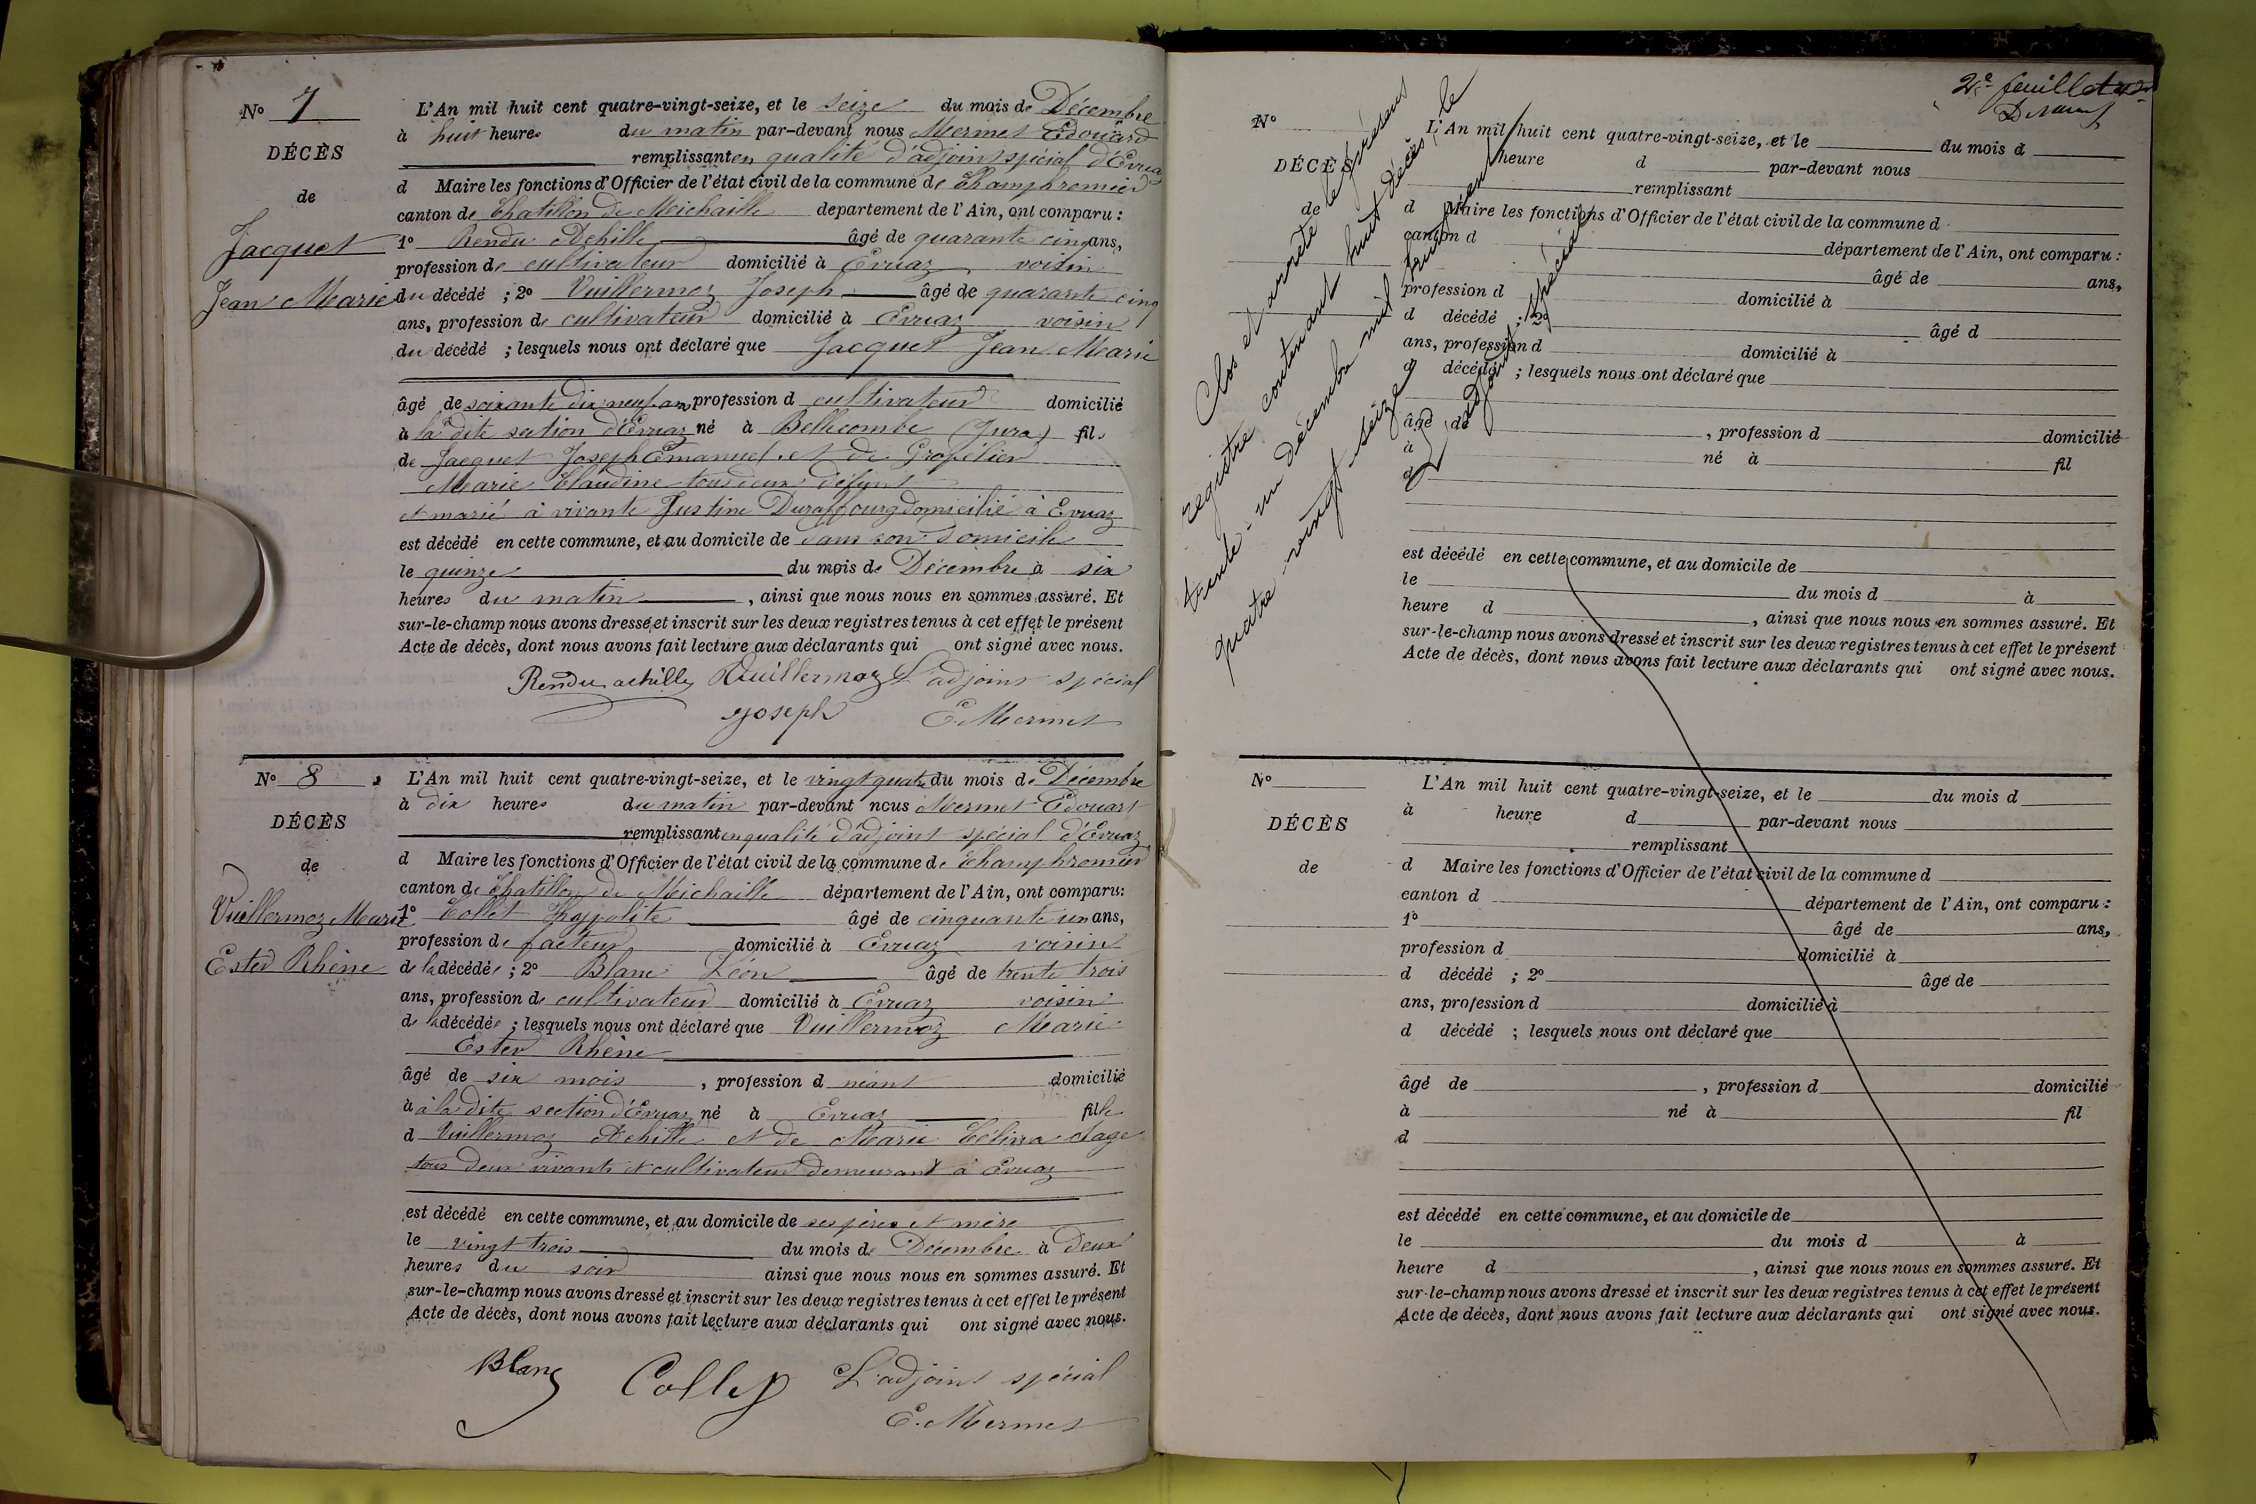 N° 7
DÉCÈS
de
Jacquet
Jean Marie
L'An mil huit cent quatre-vingt-seize, et le seize du mois de Décembre
à huit heures du matin par-devant nous Mermet Edouard
remplissant en qualité d'adjoint spécial d'Evuaz
d Maire les fonctions d'Officier de l'état civil de la commune de Champfromier
canton de Chatillon de Michaille departement de l'Ain, ont comparu :
1° Rendu Achille âgé de quarante cinq ans,
profession de cultivateur domicilié à Evuaz voisin
du décédé ; 2° Vuillermoz Joseph âgé de quarante cinq
ans, profession de cultivateur domicilié à Evuaz voisin
du décédé ; lesquels nous ont déclaré que Jacquet Jean Marie
âgé de soixante dix neuf ans profession d cultivateur domicilié
à la dite section d'Evuaz né à Bellecombe (Jura) fils
de Jacquet Joseph Emanuel et de Grofilier
Marie Claudine tous deux défunt
et marié à vivante Justine Duraffourg domicilié à Evuaz
est décédé en cette commune, et au domicile de dans son domicile
le quinze du mois de Décembre à six
heures du matin , ainsi que nous nous en sommes assuré. Et
sur-le-champ nous avons dressé et inscrit sur les deux registres tenus à cet effet le présent
Acte de décès, dont nous avons fait lecture aux déclarants qui ont signé avec nous.
Rendu achille Vuillermoz L'adjoint spécial
joseph E. Mermet
N° 8
DÉCÈS
de
Vuillermoz Marie
Ester Rhène
L'An mil huit cent quatre-vingt-seize, et le vingt quatre du mois de Décembre
à dix heures du matin par-devant nous Mermet Edouart
remplissant en qualité d'adjoint spécial d'Evuaz
d Maire les fonctions d'Officier de l'état civil de la commune de Champfromier
canton de Chatillon de Michaille département de l'Ain, ont comparu:
1° Collet Hyppolite âgé de cinquante un ans,
profession de facteur domicilié à Evuaz voisin
de la décédée ; 2° Blanc Léon âgé de trente trois
ans, profession de cultivateur domicilié à Evuaz voisin
de la décédée ; lesquels nous ont déclaré que Vuillermoz Marie
Ester Rhène
âgé de six mois , profession d néant domicilié
à à la dite section d'Evuaz né à Evuaz fille
d Vuillermoz Achille et de Marie Célina
tous deux vivants et cultivateur demeurant à Evuaz
est décédé en cette commune, et au domicile de ses père et mère
le vingt trois du mois de Décembre à deux
heures du soir ainsi que nous nous en sommes assuré. Et
sur-le-champ nous avons dressé et inscrit sur les deux registres tenus à cet effet le présent
Acte de décès, dont nous avons fait lecture aux déclarants qui ont signé avec nous.
Blanc Collet L'adjoint spécial
E. Mermet
2e feuillet
Clos et arrêté le présent
registre contenant huit décès, le
trente-un décembre mil huit cent
quatre vingt seize
L'adjoint spécial
N°
DÉCÈS
de
L'An mil huit cent quatre-vingt-seize, et le du mois d
heure d par-devant nous
remplissant
d Maire les fonctions d'Officier de l'état civil de la commune d
canton d département de l'Ain, ont comparu :
âgé de ans,
profession d domicilié à
d décédé ; 2° âgé d
ans, profession d domicilié à
d décédé ; lesquels nous ont déclaré que
âgé de , profession d domicilié
à né à fil
d
est décédé en cette commune, et au domicile de
le du mois d à
heure d , ainsi que nous nous en sommes assuré. Et
sur-le-champ nous avons dressé et inscrit sur les deux registres tenus à cet effet le présent
Acte de décès, dont nous avons fait lecture aux déclarants qui ont signé avec nous.
N°
DÉCÈS
de
L'An mil huit cent quatre-vingt-seize, et le du mois d
à heure d par-devant nous
remplissant
d Maire les fonctions d'Officier de l'état civil de la commune d
canton d département de l'Ain, ont comparu :
1° âgé de ans,
profession d domicilié à
d décédé ; 2° âgé de
ans, profession d domicilié à
d décédé ; lesquels nous ont déclaré que
âgé de , profession d domicilié
à né à fil
d
est décédé en cette commune, et au domicile de
le du mois d à
heure d , ainsi que nous nous en sommes assuré. Et
sur-le-champ nous avons dressé et inscrit sur les deux registres tenus à cet effet le présent
Acte de décès, dont nous avons fait lecture aux déclarants qui ont signé avec nous.